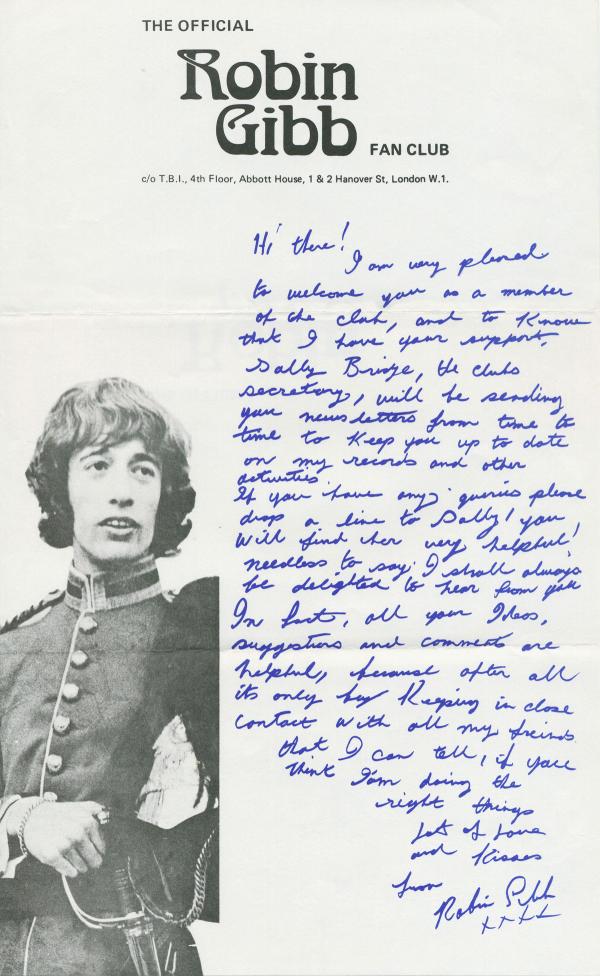 THE OFFICIAL
Robin
Gibb
FAN CLUB
c/o T.B.I., 4th Floor, Abbott House, 1 & 2 Hanover St, London W.1.
Hi there!
I am very pleased
to welcome you as a member
of the club, and to know
that I have your support.
Sally Bridge, the clubs
secretary, will be sending
you newsletters from time to
time to keep you up to date
on my records and other
activities.
If you have any queries please
drop a line to Sally! you
will find her very helpful!
needless to say, I shall always
be delighted to hear from you
In fact, all your Ideas,
suggestions and comments are
helpful, because after all
its only by Keeping in close
contact with all my freinds
that I can tell, if you
think I'am doing the
right things
Lots of Love
and Kisses
from
Robin Gibb
xxxx